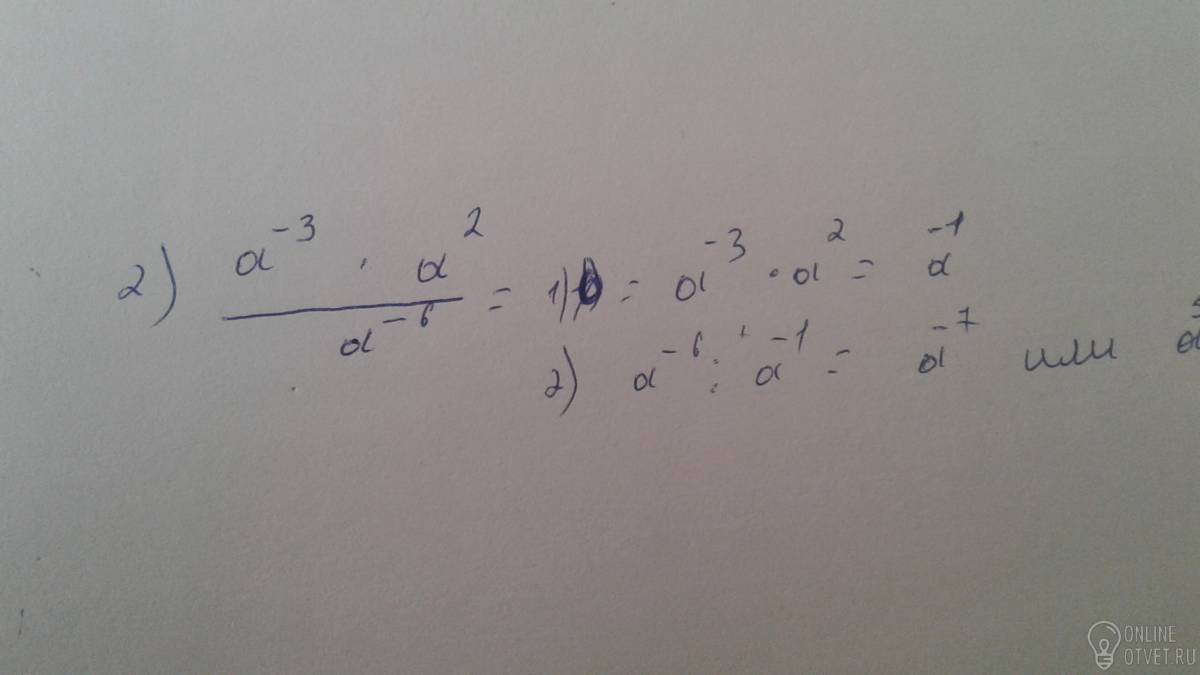 2) a⁻³ · a² / a⁻⁶ = 1) = a⁻³ · a² = a⁻¹
2) a⁻⁶ : a⁻¹ = a⁻⁷ или a⁵
ONLINE
OTVET.RU